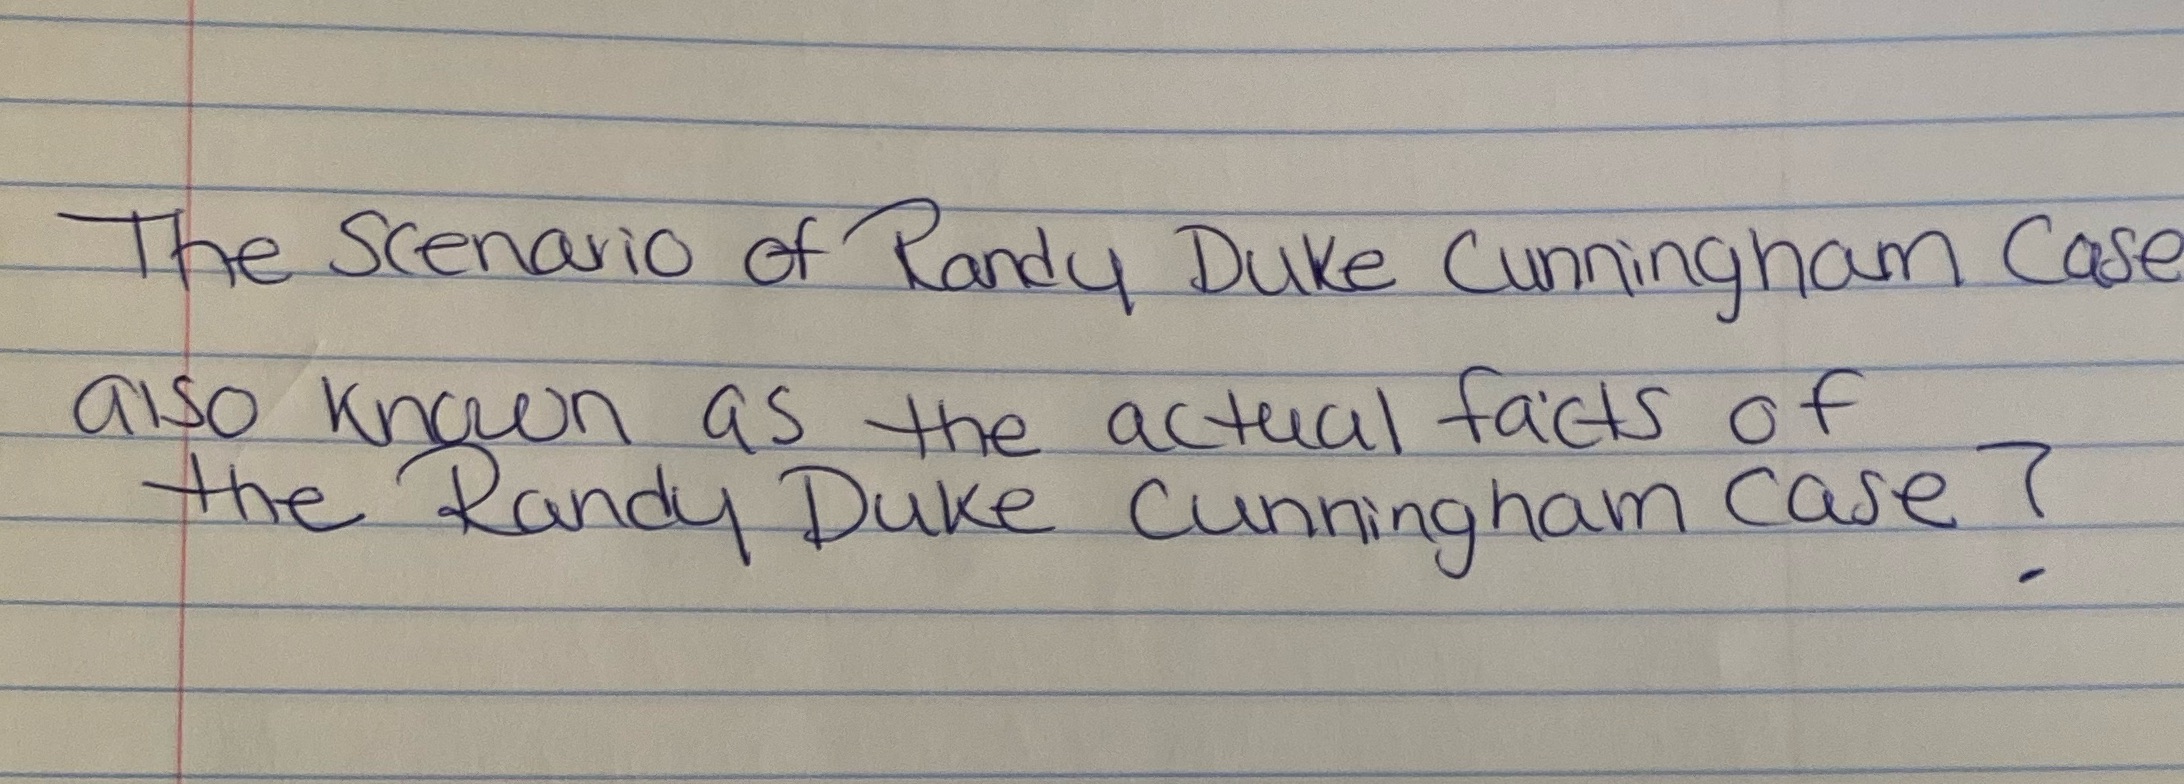 The Scenario of Randy Duke Cunningham Case
also known as the actual facts of
the Randy Duke Cunningham Case?